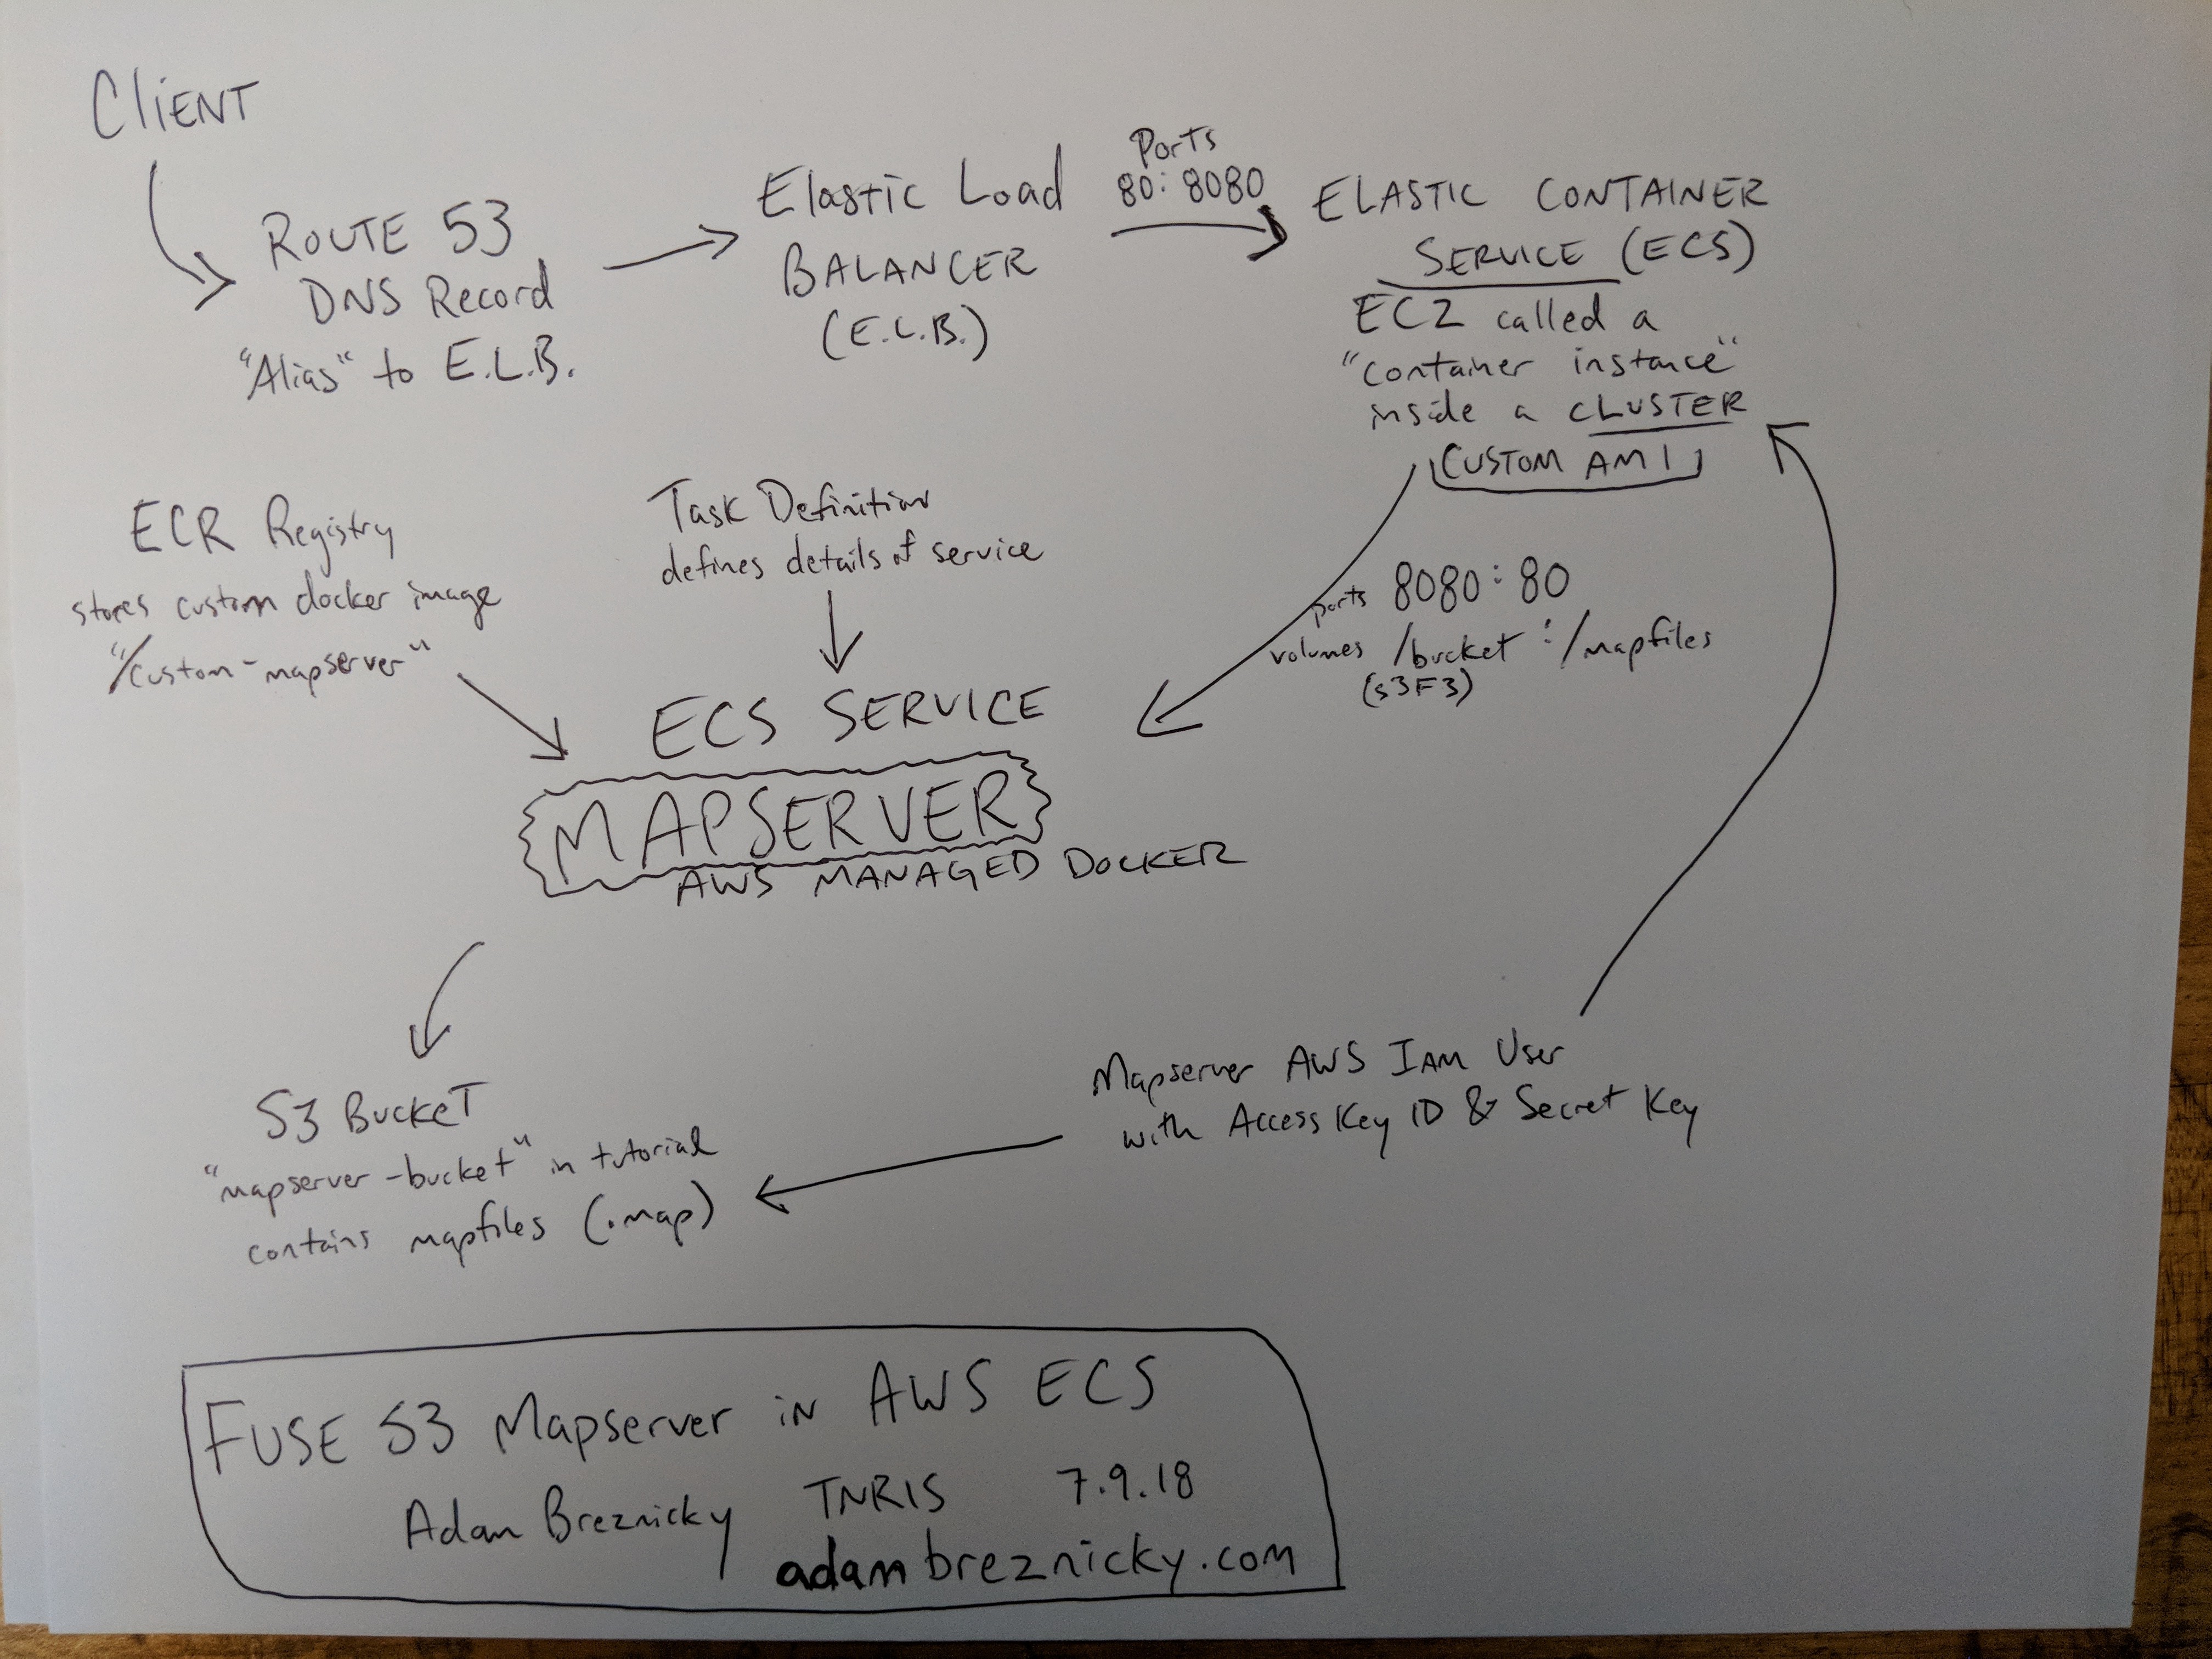 Client
Route 53
DNS Record
"Alias" to E.L.B.
Elastic Load
Balancer
(E.L.B.)
Ports
80:8080
Elastic Container
Service (ECS)
EC2 called a
"container instance"
inside a cluster
Custom AMI
ECR Registry
stores custom docker image
"/custom-mapserver"
Task Definition
defines details of service
ports 8080:80
volumes /bucket:/mapfiles
(s3F3)
ECS Service
MAPSERVER
AWS Managed Docker
S3 Bucket
"mapserver-bucket" in tutorial
contains mapfiles (.map)
Mapserver AWS IAM User
with Access Key ID & Secret Key
Fuse S3 Mapserver in AWS ECS
Adam Breznicky TNRIS 7.9.18
adambreznicky.com